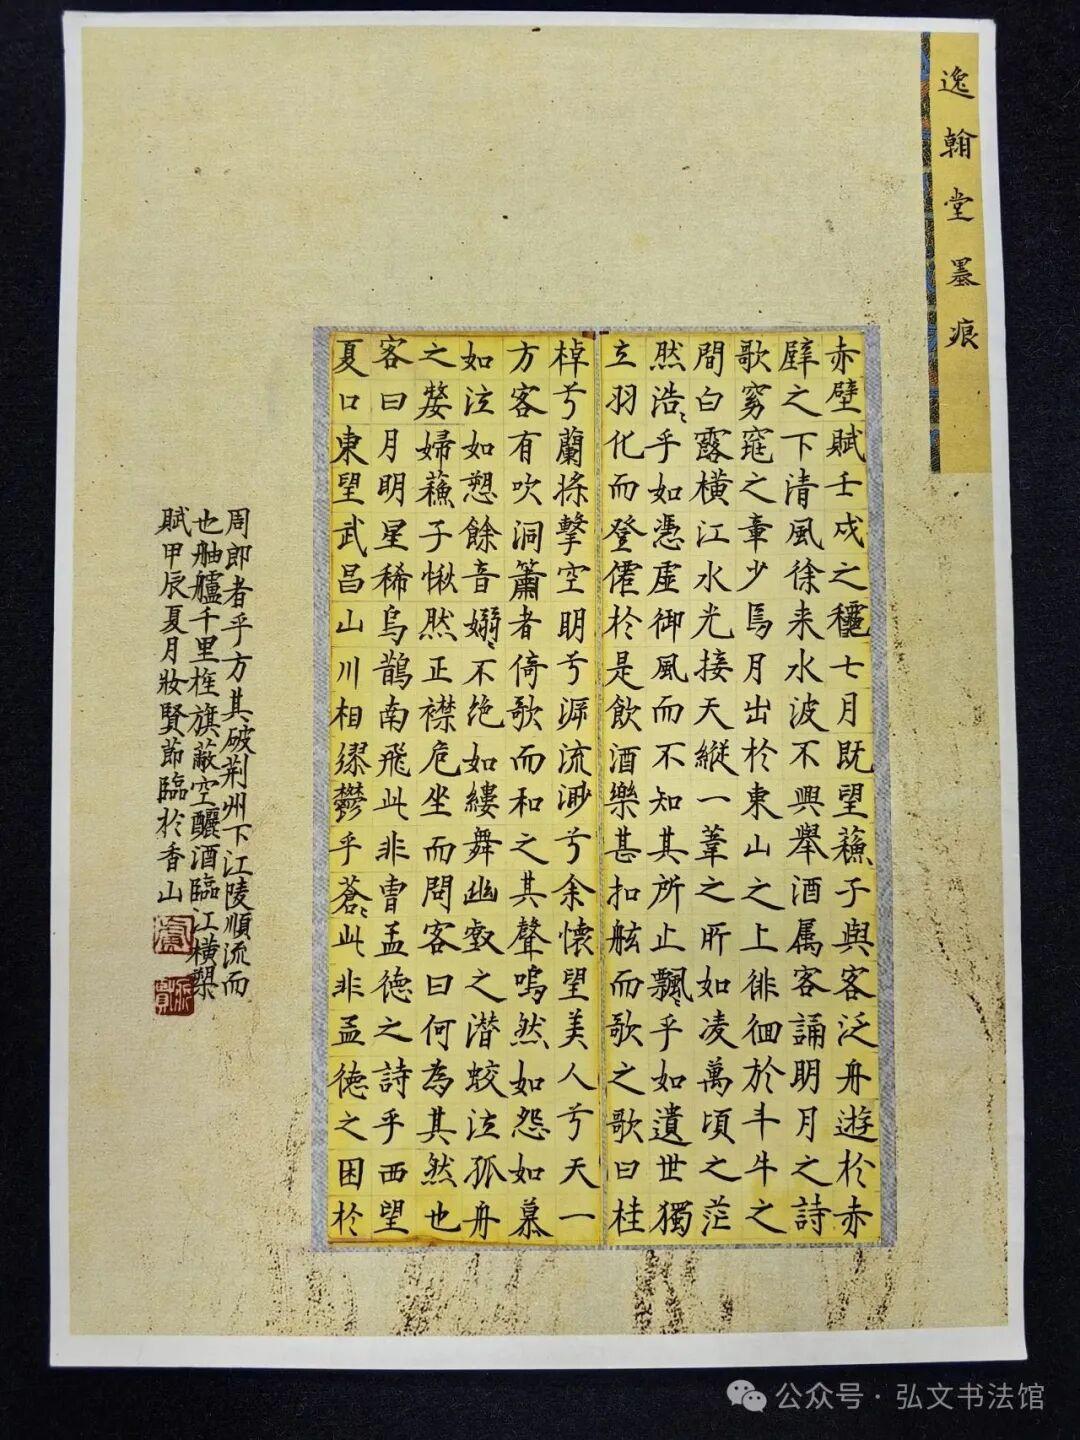 逸翰堂墨痕
赤壁賦壬戌之穐七月既望蘓子與客泛舟遊於赤
壁之下清風徐来水波不興舉酒属客誦明月之詩
歌窈窕之章少焉月出於東山之上徘徊於斗牛之
間白露橫江水光接天縱一葦之所如凌萬頃之茫
然浩〻乎如憑虛御風而不知其所止飄〻乎如遺世獨
立羽化而登僊於是飲酒樂甚扣舷而歌之歌曰桂
棹兮蘭槳擊空明兮泝流渺兮余懷望美人兮天一
方客有吹洞簫者倚歌而和之其聲嗚然如怨如慕
如泣如愬餘音嫋〻不绝如縷舞幽壑之潜蛟泣孤舟
之嫠婦蘓子愀然正襟危坐而問客曰何為其然也
客曰月明星稀烏鵲南飛此非曹孟德之詩乎西望
夏口東望武昌山川相繆鬱乎蒼〻此非孟德之困於
周郎者乎方其破荆州下江陵順流而
也舳艫千里旌旗蔽空釃酒臨江橫槊
賦甲辰夏月妝賢節臨於香山
公众号·弘文书法馆